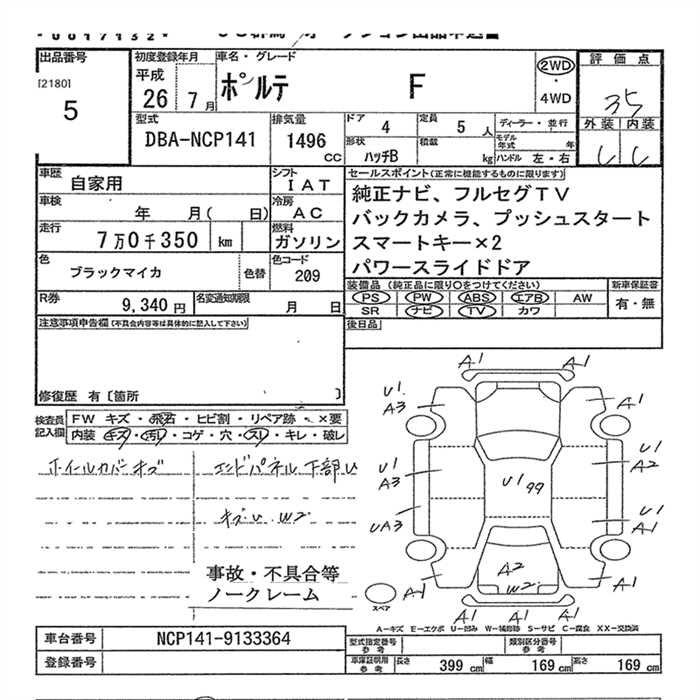 出品番号
[2180]
5
初度登録年月
平成
26 7月
車名・グレード
ポルテ F
2WD
・
4WD
評価点
3.5
外装 内装
型式
DBA-NCP141
排気量
1496
CC
ドア
4
定員
5 人
形状
ハッチB
積載
kg
ディーラー・並行
モデル年式 年
ハンドル 左・右
車歴
自家用
シフト
IAT
車検
年 月( 日)
冷房
AC
走行
7万0千350 km
燃料
ガソリン
色
ブラックマイカ
色替
色コード
209
R券
9,340円
名変通知期限
月 日
セールスポイント(正常に機能するものに限ります)
純正ナビ、フルセグTV
バックカメラ、プッシュスタート
スマートキー×2
パワースライドドア
装備品 (純正品に限り○をつけてください)
PS PW ABS エアB AW
SR ナビ TV カワ
新車保証書
有・無
後日品
注意事項申告欄(不具合内容等は具体的に記入して下さい)
修復歴 有〔箇所 〕
検査員
記入欄
FW キズ・飛石・ヒビ割・リペア跡・×要
内装 キズ・汚レ・コゲ・穴・スレ・キレ・破レ
ホイールカバーキズ
エンドパネル下部U
キズU W2
事故・不具合等
ノークレーム
A1 A1
U1
A3
A1
U1
A3
U1
99
U1
A2
UA3
U1
A1
A1
A2
W2
A1
A1 A1
スペア
A-キズ E-エクボ U-凹み W-補修跡 S-サビ C-腐食 XX-交換済
車台番号
NCP141-9133364
登録番号
型式指定番号
参考
類別区分番号
参考
車庫証明用
参考
長さ 399 cm 幅 169 cm 高さ 169 cm